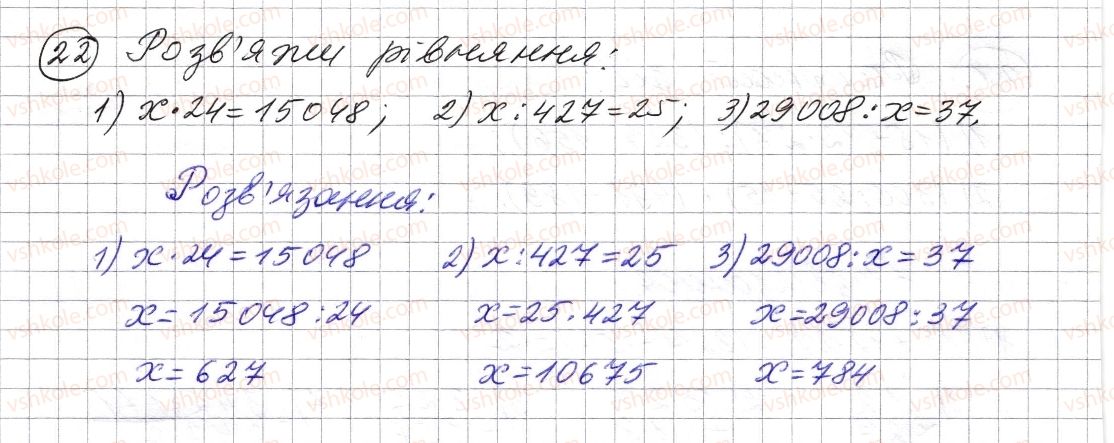 22 Розв'яжи рівняння:
1) x·24=15048; 2) x:427=25; 3) 29008:x=37.
Розв'язання:
1) x·24=15048 2) x:427=25 3) 29008:x=37
x=15048:24 x=25·427 x=29008:37
x=627 x=10675 x=784